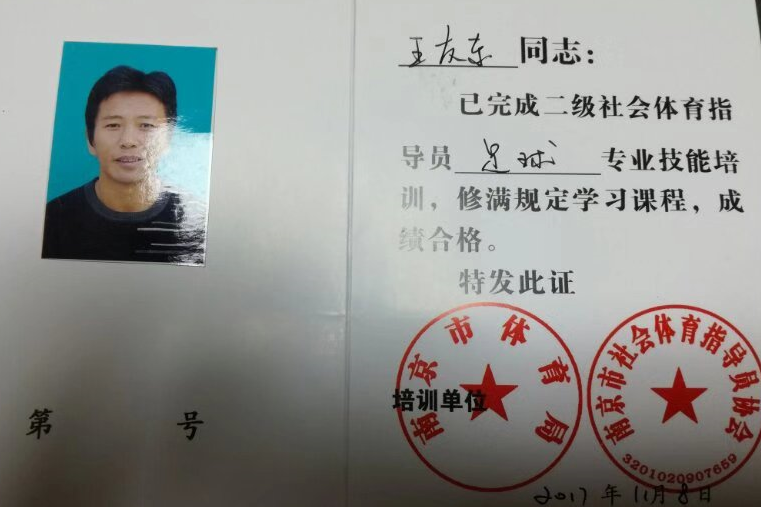 王友东同志：
已完成二级社会体育指
导员足球专业技能培
训，修满规定学习课程，成
绩合格。
特发此证
南京市体育局
南京市社会体育指导员协会
培训单位
3201020907659
第 号
2017年11月8日